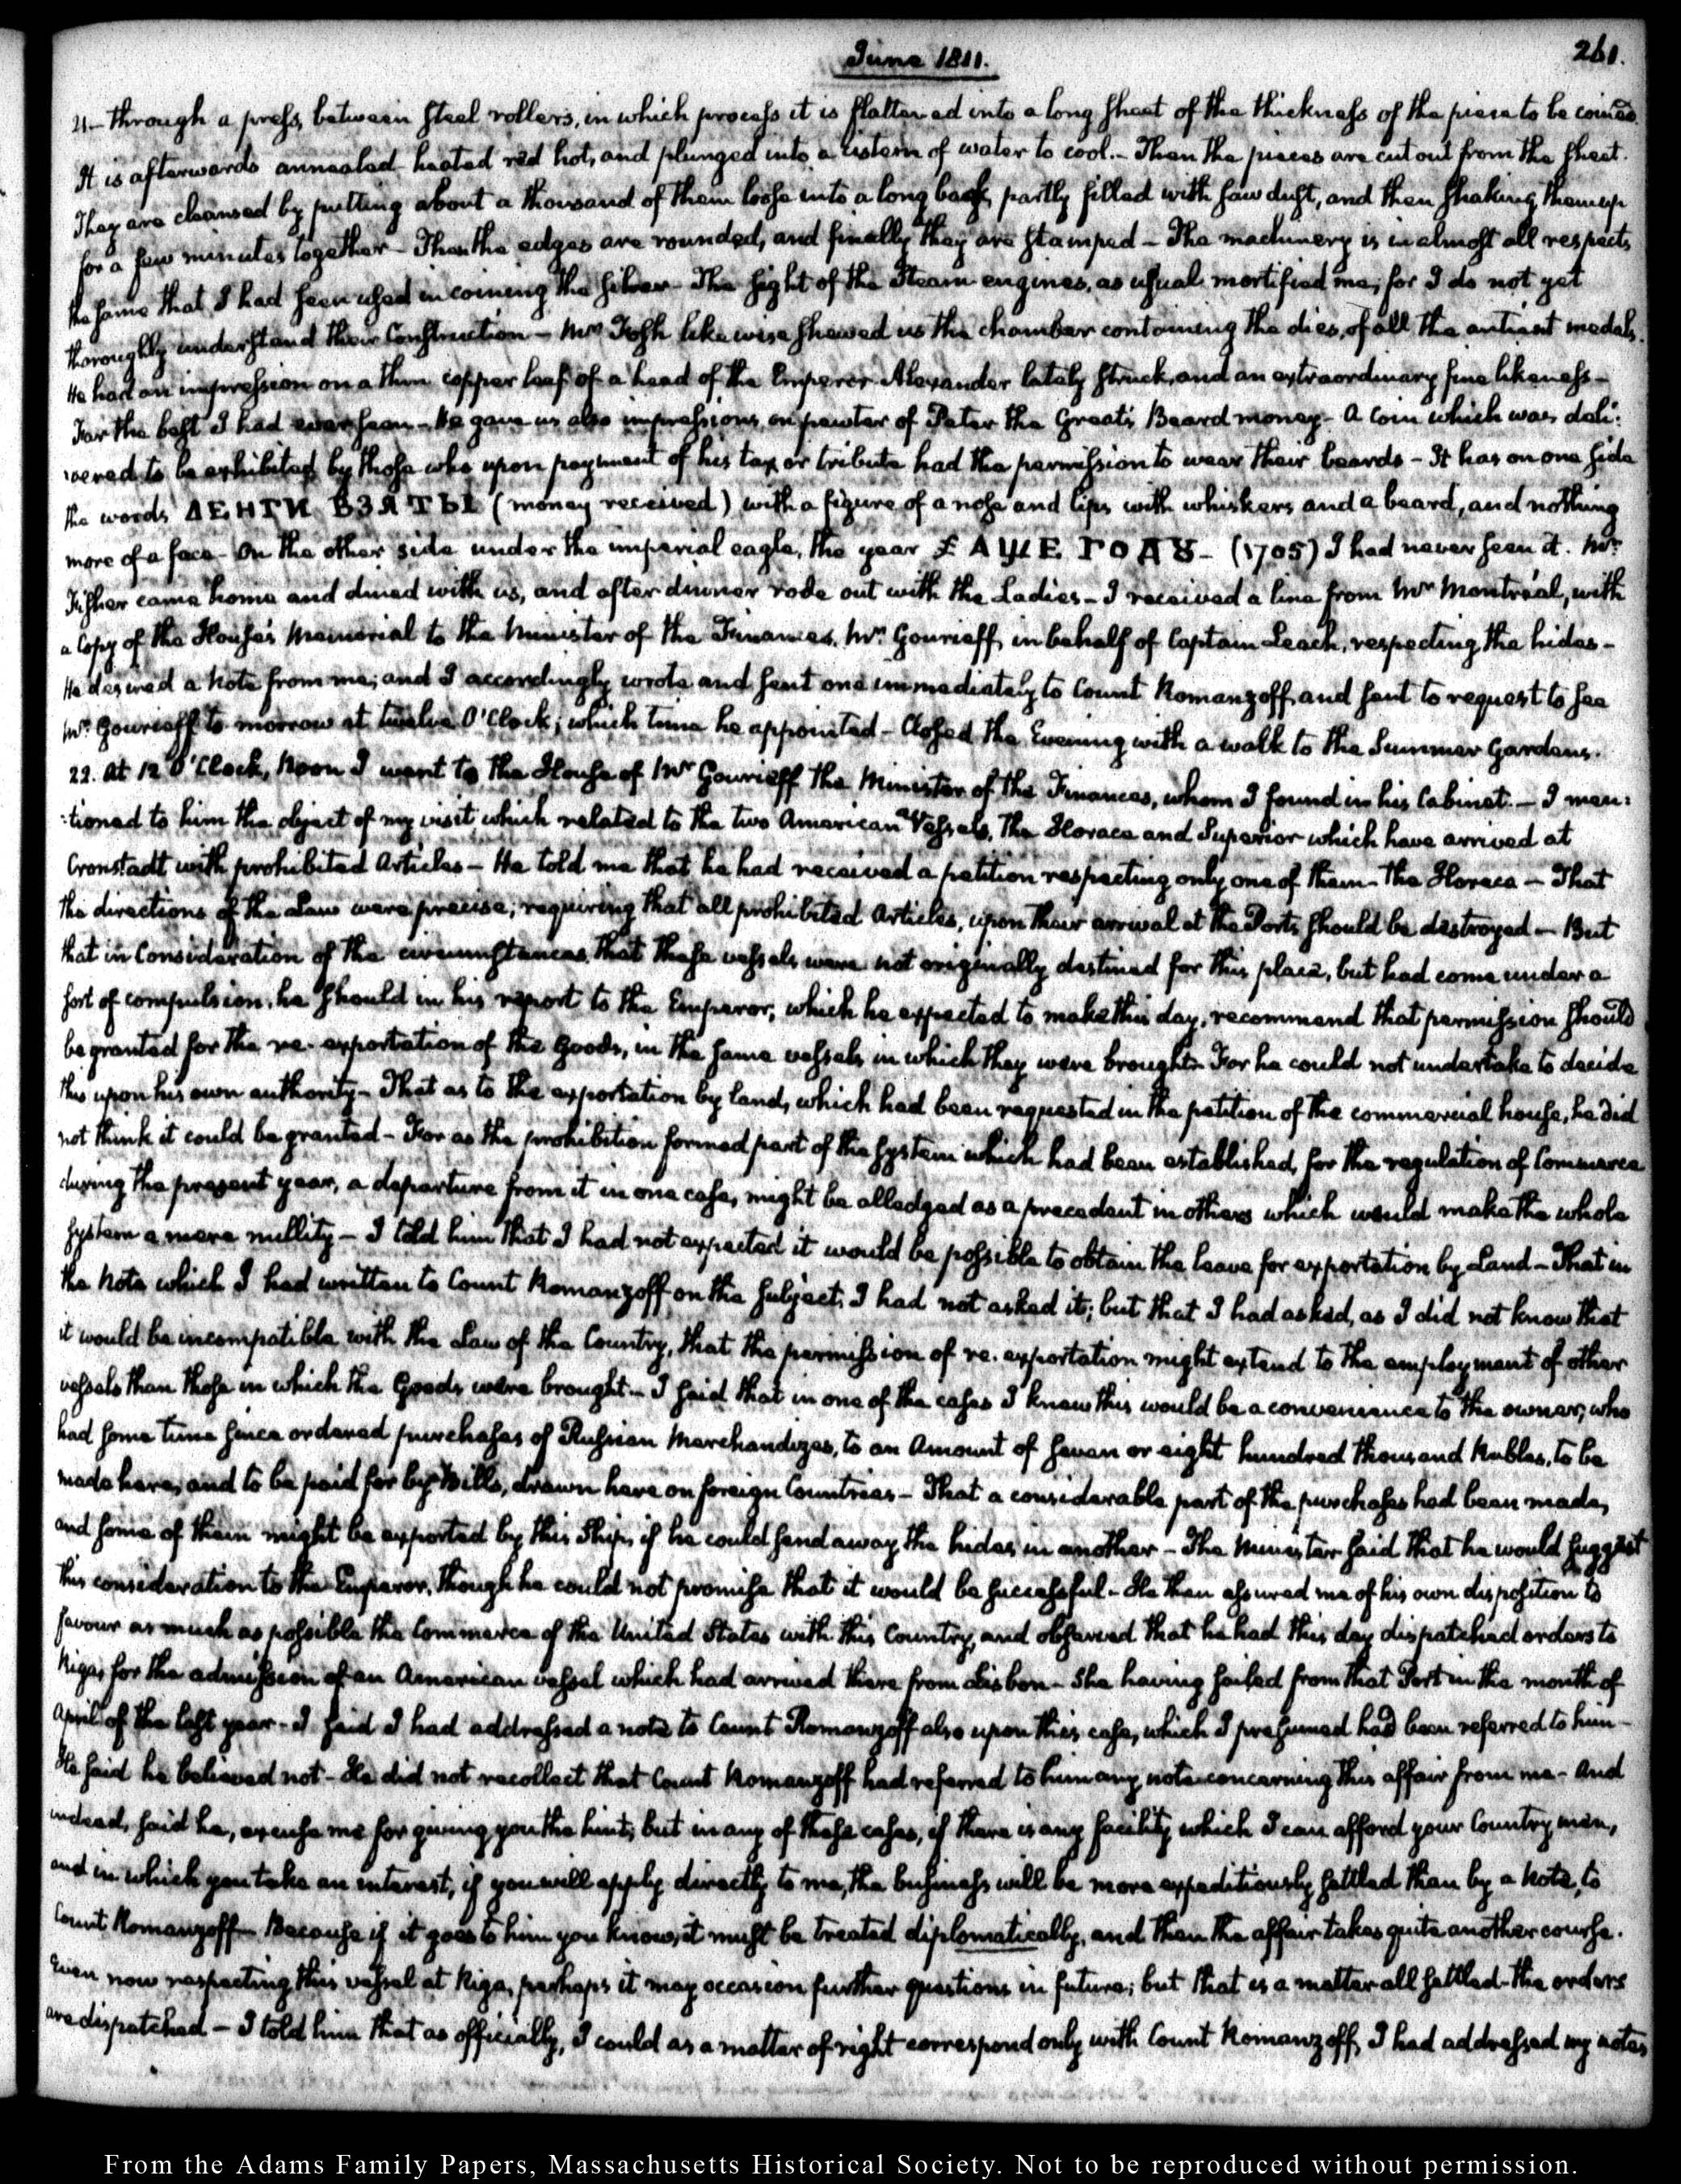 June 1811.
261.
21— through a press, between steel rollers, in which process it is flattened into a long sheet of the thickness of the piece to be coined.
It is afterwards annealed heated red hot, and plunged into a cistern of water to cool.— Then the pieces are cut out from the sheet.
They are cleansed by putting about a thousand of them loose into a long bag, partly filled with saw dust, and then shaking them up
for a few minutes together— Then the edges are rounded, and finally they are stamped— The machinery is in almost all respects
the same that I had seen used in coining the silver— The sight of the Steam engines, as usual mortified me; for I do not yet
thoroughly understand their Construction— Mr. Fosh likewise shewed us the chamber containing the dies, of all the antient medals.
He had an impression on a thin copper leaf of a head of the Emperor Alexander lately struck, and an extraordinary fine likeness—
Far the best I had ever seen— He gave us also impressions on pewter of Peter the Great's Beard money— A Coin which was deli:
:vered to be exhibited by those who upon payment of his tax or tribute had the permission to wear their beards— It has on one side
the words ДЕНГИ ВЗЯТЫ (money received) with a figure of a nose and lips with whiskers and a beard, and nothing
more of a face— On the other side under the imperial eagle, the year ҂АΨЕ ГОДꙊ— (1705) I had never seen it. Mr.
Fisher came home and dined with us, and after dinner rode out with the Ladies— I received a line from Mr Montréal, with
a Copy of the House's Memorial to the Minister of the Finances, Mr. Gourieff, in behalf of Captain Leach, respecting the hides—
He desired a Note from me; and I accordingly wrote and sent one immediately to Count Romanzoff, and sent to request to see
Mr. Gourieff to morrow at twelve O'Clock; which time he appointed— Closed the Evening with a walk to the Summer Gardens.
22. At 12 O'Clock, Noon I went to the House of Mr Gourieff the Minister of the Finances, whom I found in his Cabinet.— I men:
:tioned to him the object of my visit which related to the two American Vessels, the Horace and Superior which have arrived at
Cronstadt with prohibited Articles— He told me that he had received a petition respecting only one of them— the Horace— That
the directions of the Law were precise; requiring that all prohibited Articles, upon their arrival at the Ports should be destroyed— But
that in Consideration of the circumstances that these vessels were not originally destined for this place, but had come under a
sort of compulsion, he should in his report to the Emperor, which he expected to make this day, recommend that permission should
be granted for the re-exportation of the Goods, in the same vessels in which they were brought— For he could not undertake to decide
this upon his own authority— That as to the exportation by land, which had been requested in the petition of the commercial house, he did
not think it could be granted— For as the prohibition formed part of the system which had been established, for the regulation of Commerce
during the present year, a departure from it in one case, might be alledged as a precedent in others which would make the whole
system a mere nullity— I told him that I had not expected it would be possible to obtain the leave for exportation by Land— That in
the Note which I had written to Count Romanzoff on the subject, I had not asked it; but that I had asked, as I did not know that
it would be incompatible with the Law of the Country, that the permission of re-exportation might extend to the employment of other
vessels than those in which the Goods were brought— I said that in one of the cases I knew this would be a convenience to the owner, who
had some time since ordered purchases of Russian Merchandizes, to an Amount of seven or eight hundred thousand Rubles, to be
made here, and to be paid for by Bills, drawn here on foreign Countries— That a considerable part of the purchases had been made,
and some of them might be exported by this Ship, if he could send away the hides in another— The Minister said that he would suggest
this consideration to the Emperor, though he could not promise that it would be successful— He then assured me of his own disposition to
favour as much as possible the Commerce of the United States with this Country, and observed that he had this day dispatched orders to
Riga, for the admission of an American vessel which had arrived there from Lisbon— She having sailed from that Port in the month of
April of the last year— I said I had addressed a note to Count Romanzoff also upon this case, which I presumed had been referred to him—
He said he believed not— He did not recollect that Count Romanzoff had referred to him any note concerning this affair from me— And
indeed, said he, excuse me for giving you the hint; but in any of these cases, if there is any facility which I can afford your Country men,
and in which you take an interest, if you will apply directly to me, the business will be more expeditiously settled than by a Note, to
Count Romanzoff— Because if it goes to him you know, it must be treated diplomatically, and then the affair takes quite another course.
Even now respecting this vessel at Riga, perhaps it may occasion further questions in future; but that is a matter all settled— the orders
are dispatched— I told him that as officially, I could as a matter of right correspond only with Count Romanzoff, I had addressed my notes
From the Adams Family Papers, Massachusetts Historical Society. Not to be reproduced without permission.